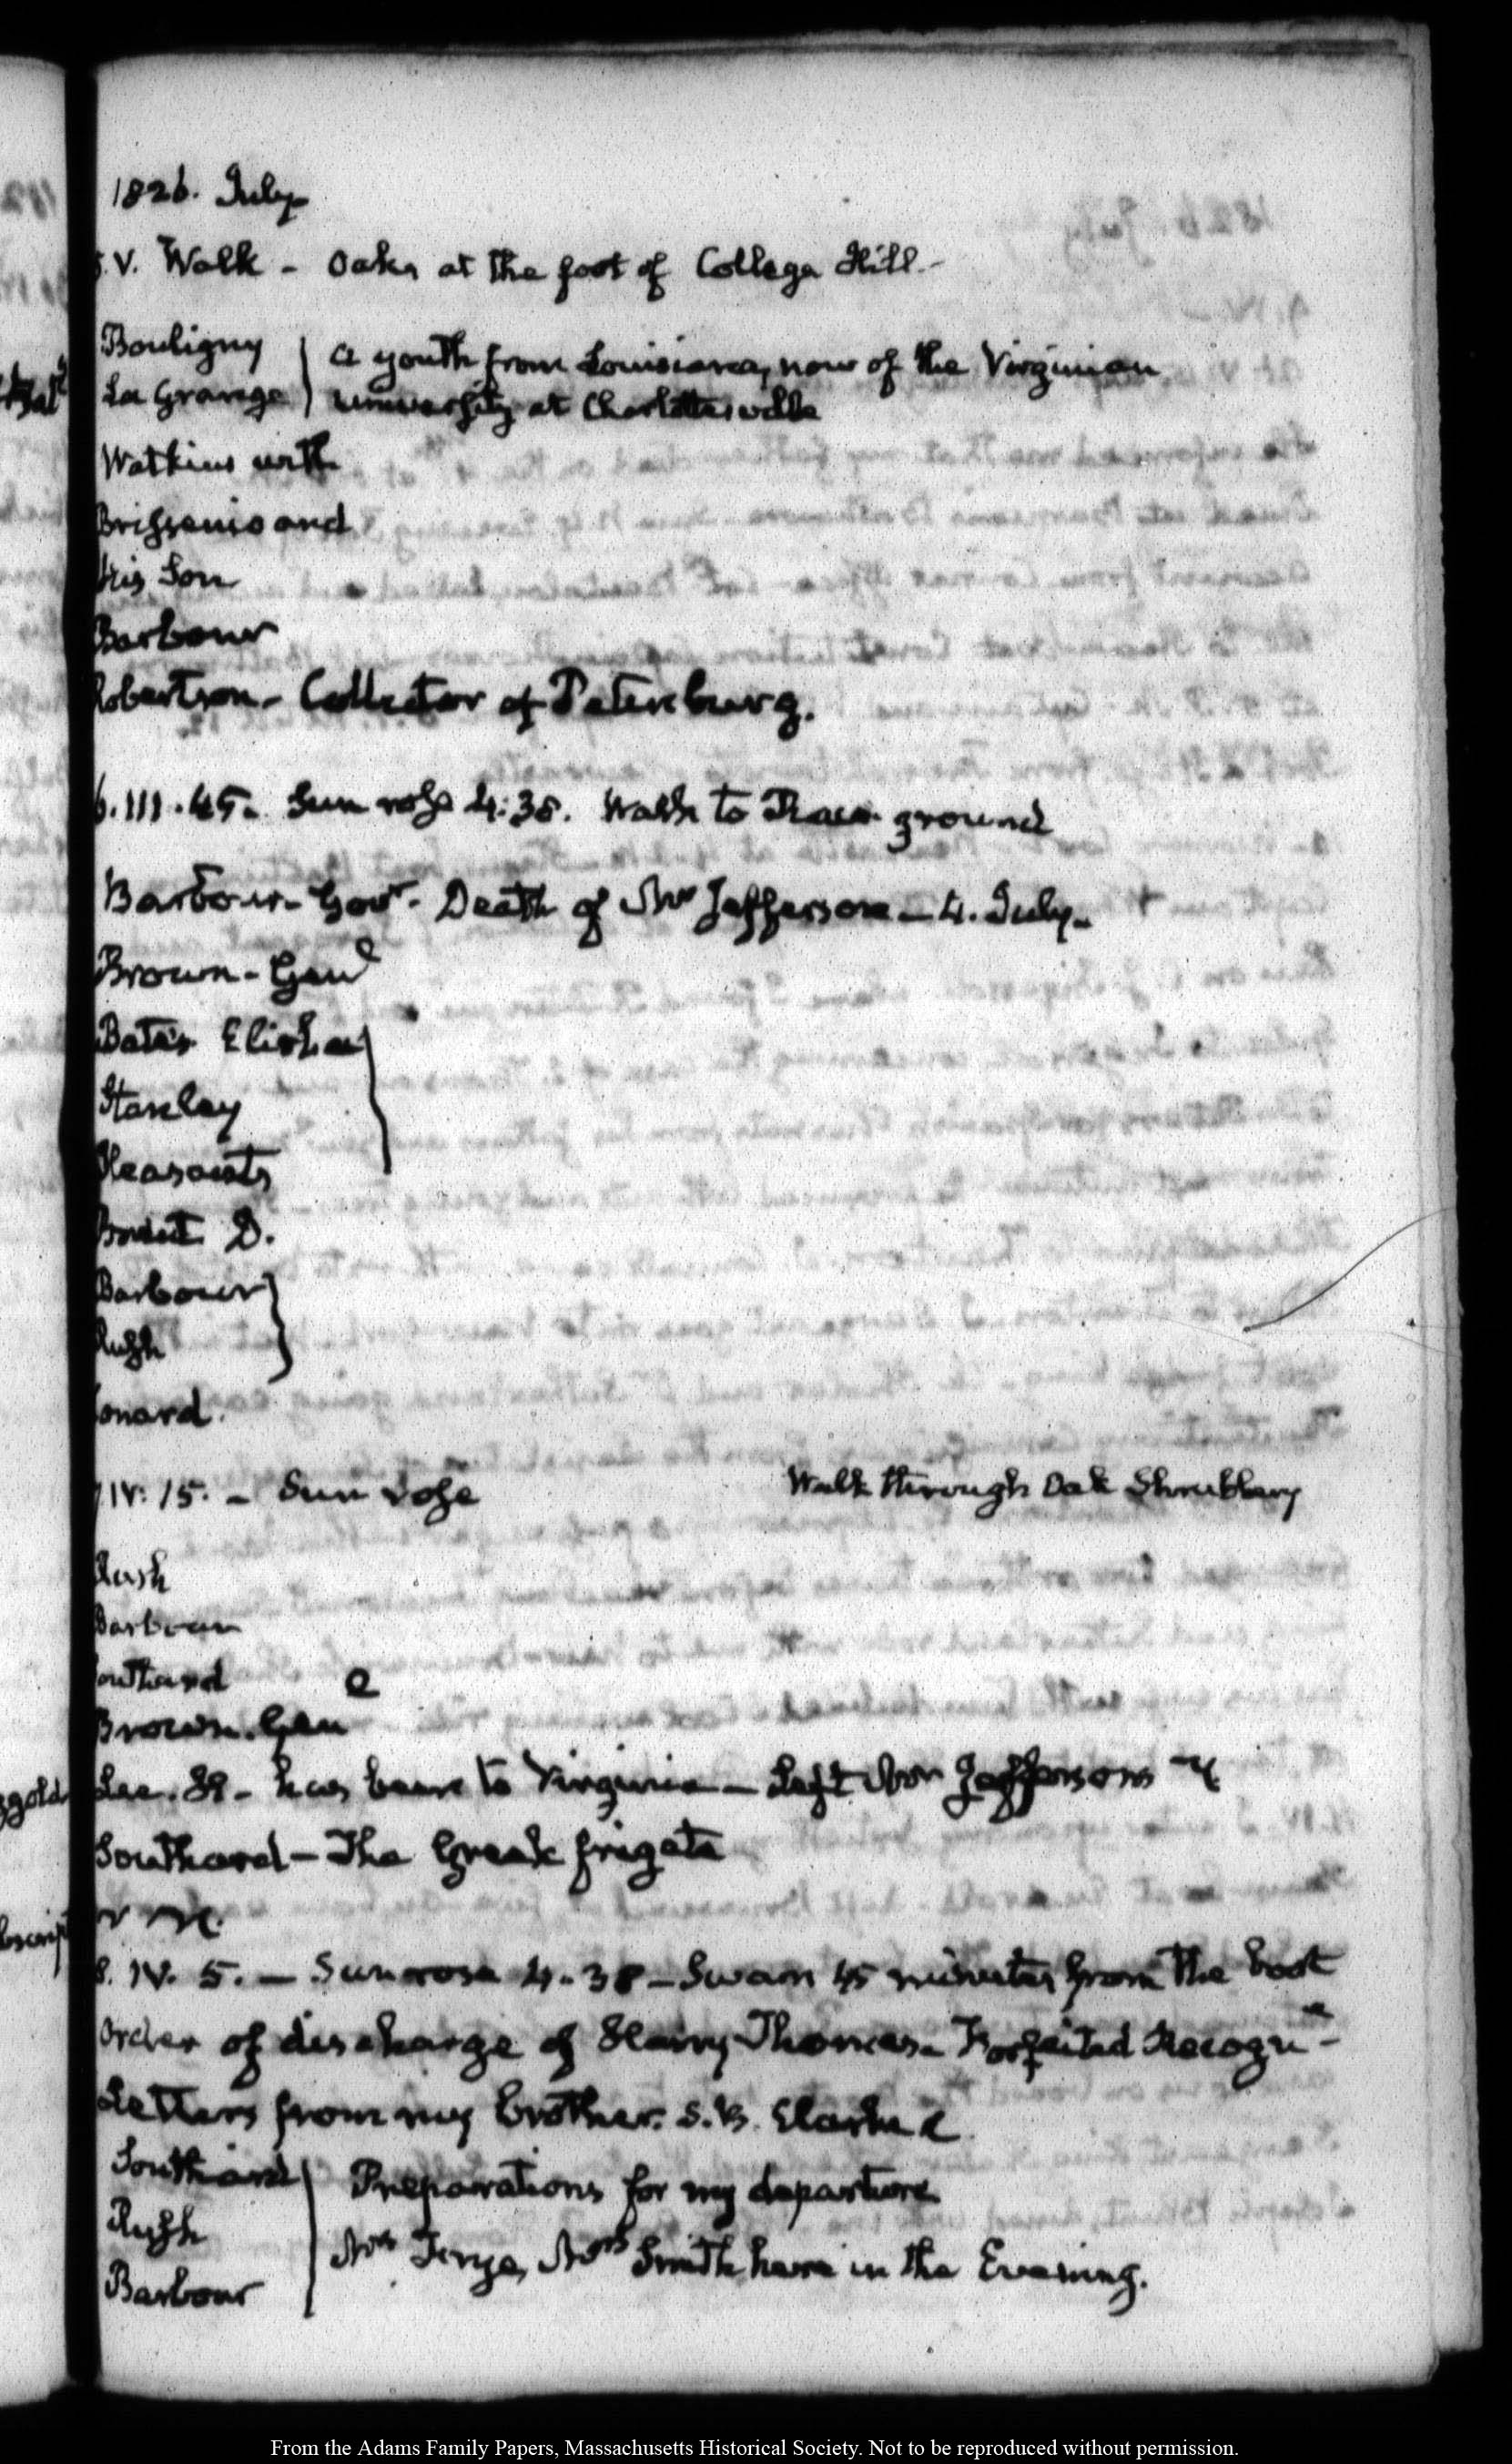 1826. July
5. V. Walk - Oaks at the foot of College Hill.-
Bouligny
La Grange
a youth from Louisiana, now of the Virginian
University at Charlottesville
Watkins with
and
his Son
Barbour
Robertson - Collector of Petersburg.
6. III. 45. Sun rose 4:38. Walk to Race ground
Barbour - Govr. Death of Mr Jefferson - 4. July.-
Brown - Genl
Bates Elisha
Stanley
Pleasants
Brent D.
Barbour
Rush
Conard.
7 IV: 15. - Sun rose
Walk through Oak Shrubbery
Rush
Barbour
Southard
Brown. Genl
Lee. - has been to Virginia - Left Mr Jefferson's
Southard - The Greek frigate
8. IV. 5. - Sun rose 4-38 - Swam 45 minutes from the boat
Order of discharge of Henry Thomas - Forfeited Recogne-
Letters from my brother.
Southard
Rush
Barbour
Preparations for my departure
Mrs Smith here in the Evening.
From the Adams Family Papers, Massachusetts Historical Society. Not to be reproduced without permission.